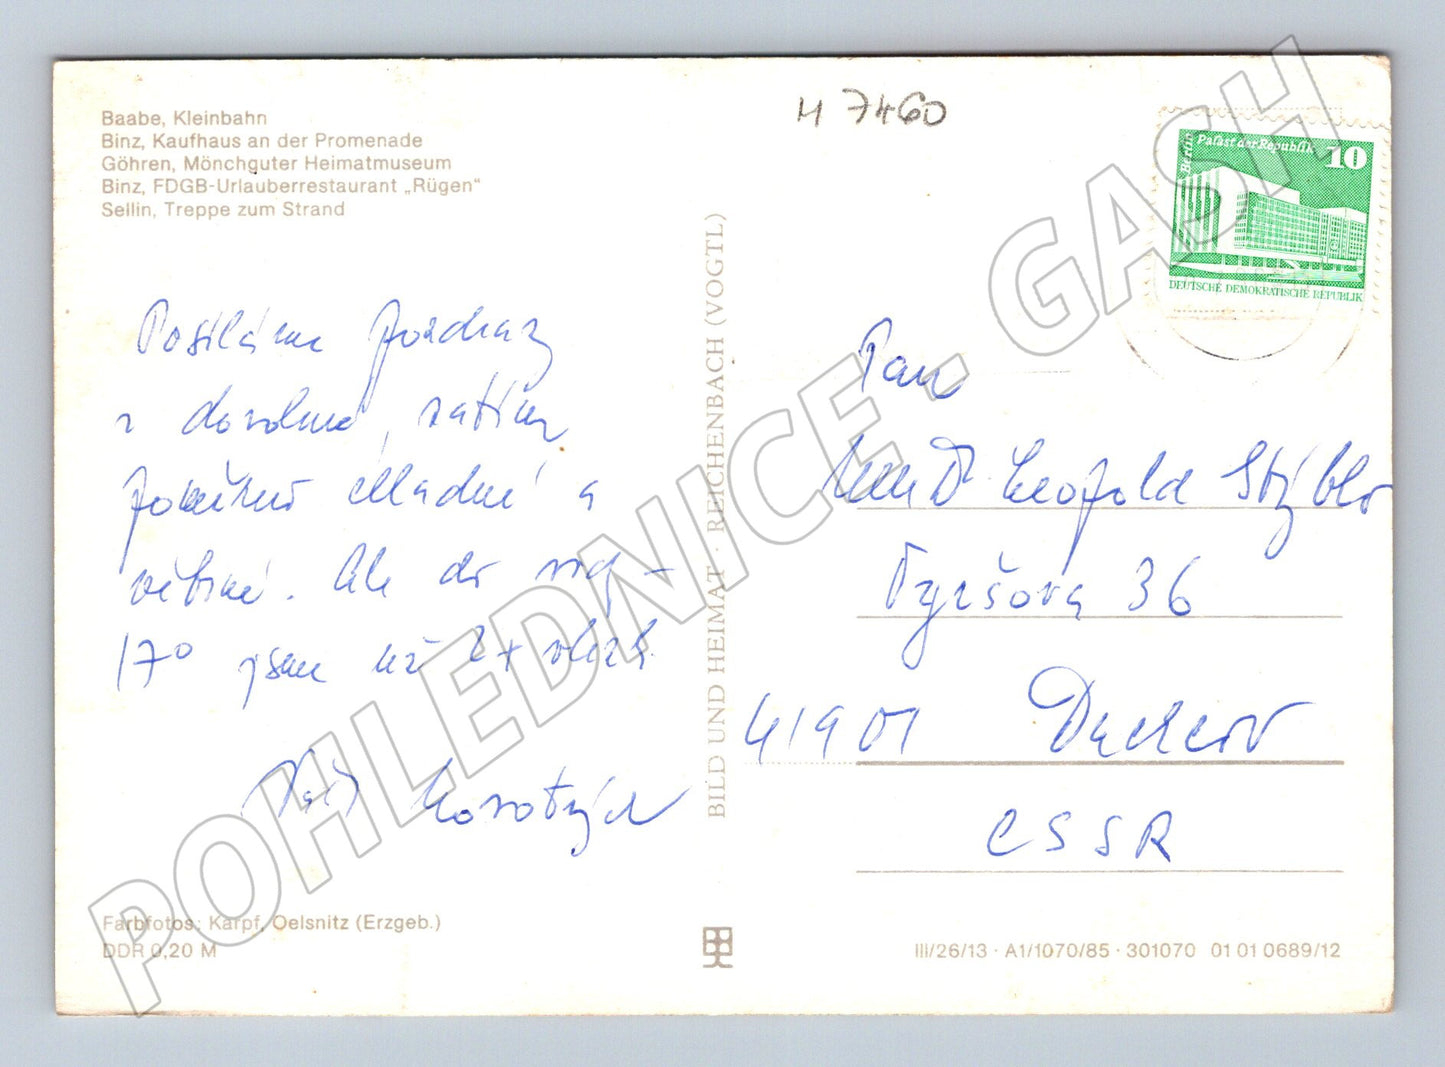 Baabe, Kleinbahn
Binz, Kaufhaus an der Promenade
Göhren, Mönchguter Heimatmuseum
Binz, FDGB-Urlauberrestaurant „Rügen“
Sellin, Treppe zum Strand
Posíláme pozdrav
z dovolené, zatím
poměrně chladné a
větrné. Ale do
17° jsme už 2x vlezli
Korotvých
Farbfotos: Karpf, Oelsnitz (Erzgeb.)
DDR 0,20 M
BILD UND HEIMAT · REICHENBACH (VOGTL)
H 7460
Berlin
Palast der Republik
10
DEUTSCHE DEMOKRATISCHE REPUBLIK
Pan
MUDr Leopold Stýblo
Tyršova 36
41901 Duchcov
CSSR
III/26/13 · A1/1070/85 · 301070 01 01 0689/12
POHLEDNICE.GASH